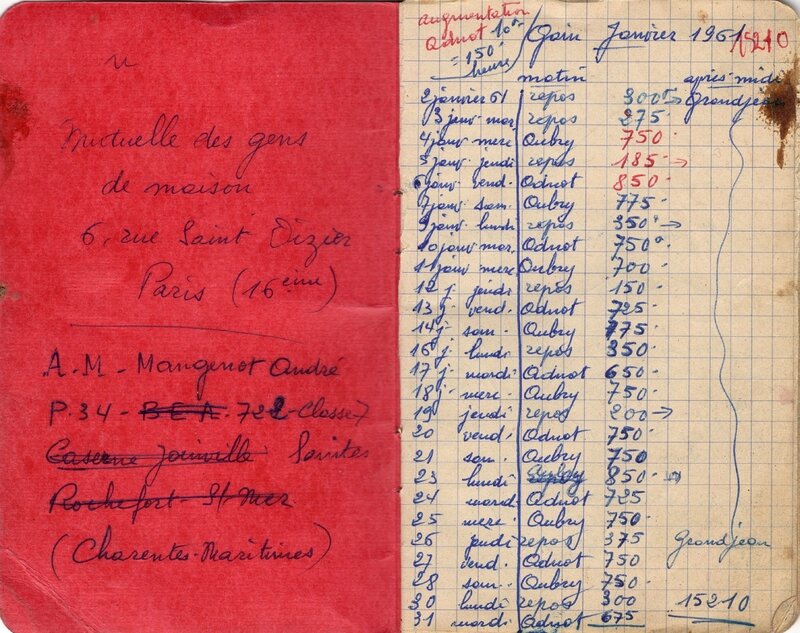 Mutuelle des gens
de maison
6, rue Saint Dizier
Paris (16ème)
A.M - Mangenot André
P.34 - B E A. 722 - Classe 7
Caserne Joinville Saintes
Rochefort S/ Mer
(Charentes-Maritimes)
augmentation
Adnot 10%
= 150
heures
Gain Janvier 1961 15210
matin après-midi
2 janvier 61 repos 300 → Grandjean
3 janv mar. repos 275
4 janv merc Aubry 750
5 janv jeudi repos 185 →
6 janv vend. Adnot 850
7 janv sam. Aubry 775
9 janv lundi repos 350 →
10 janv mar. Adnot 750
11 janv merc Aubry 700
12 j. jeudi repos 150
13 j. vend. Adnot 725
14 j. sam. Aubry 775
16 j. lundi repos 350
17 j. mardi Adnot 650
18 j. merc. Aubry 750
19 jeudi repos 200 →
20 vend. Adnot 750
21 sam. Aubry 750
23 lundi 850 →
24 mardi Adnot 725
25 merc. Aubry 750
26 jeudi repos 375 Grandjean
27 vend. Adnot 750
28 sam. Aubry 750
30 lundi repos 300 15210
31 mardi Adnot 675